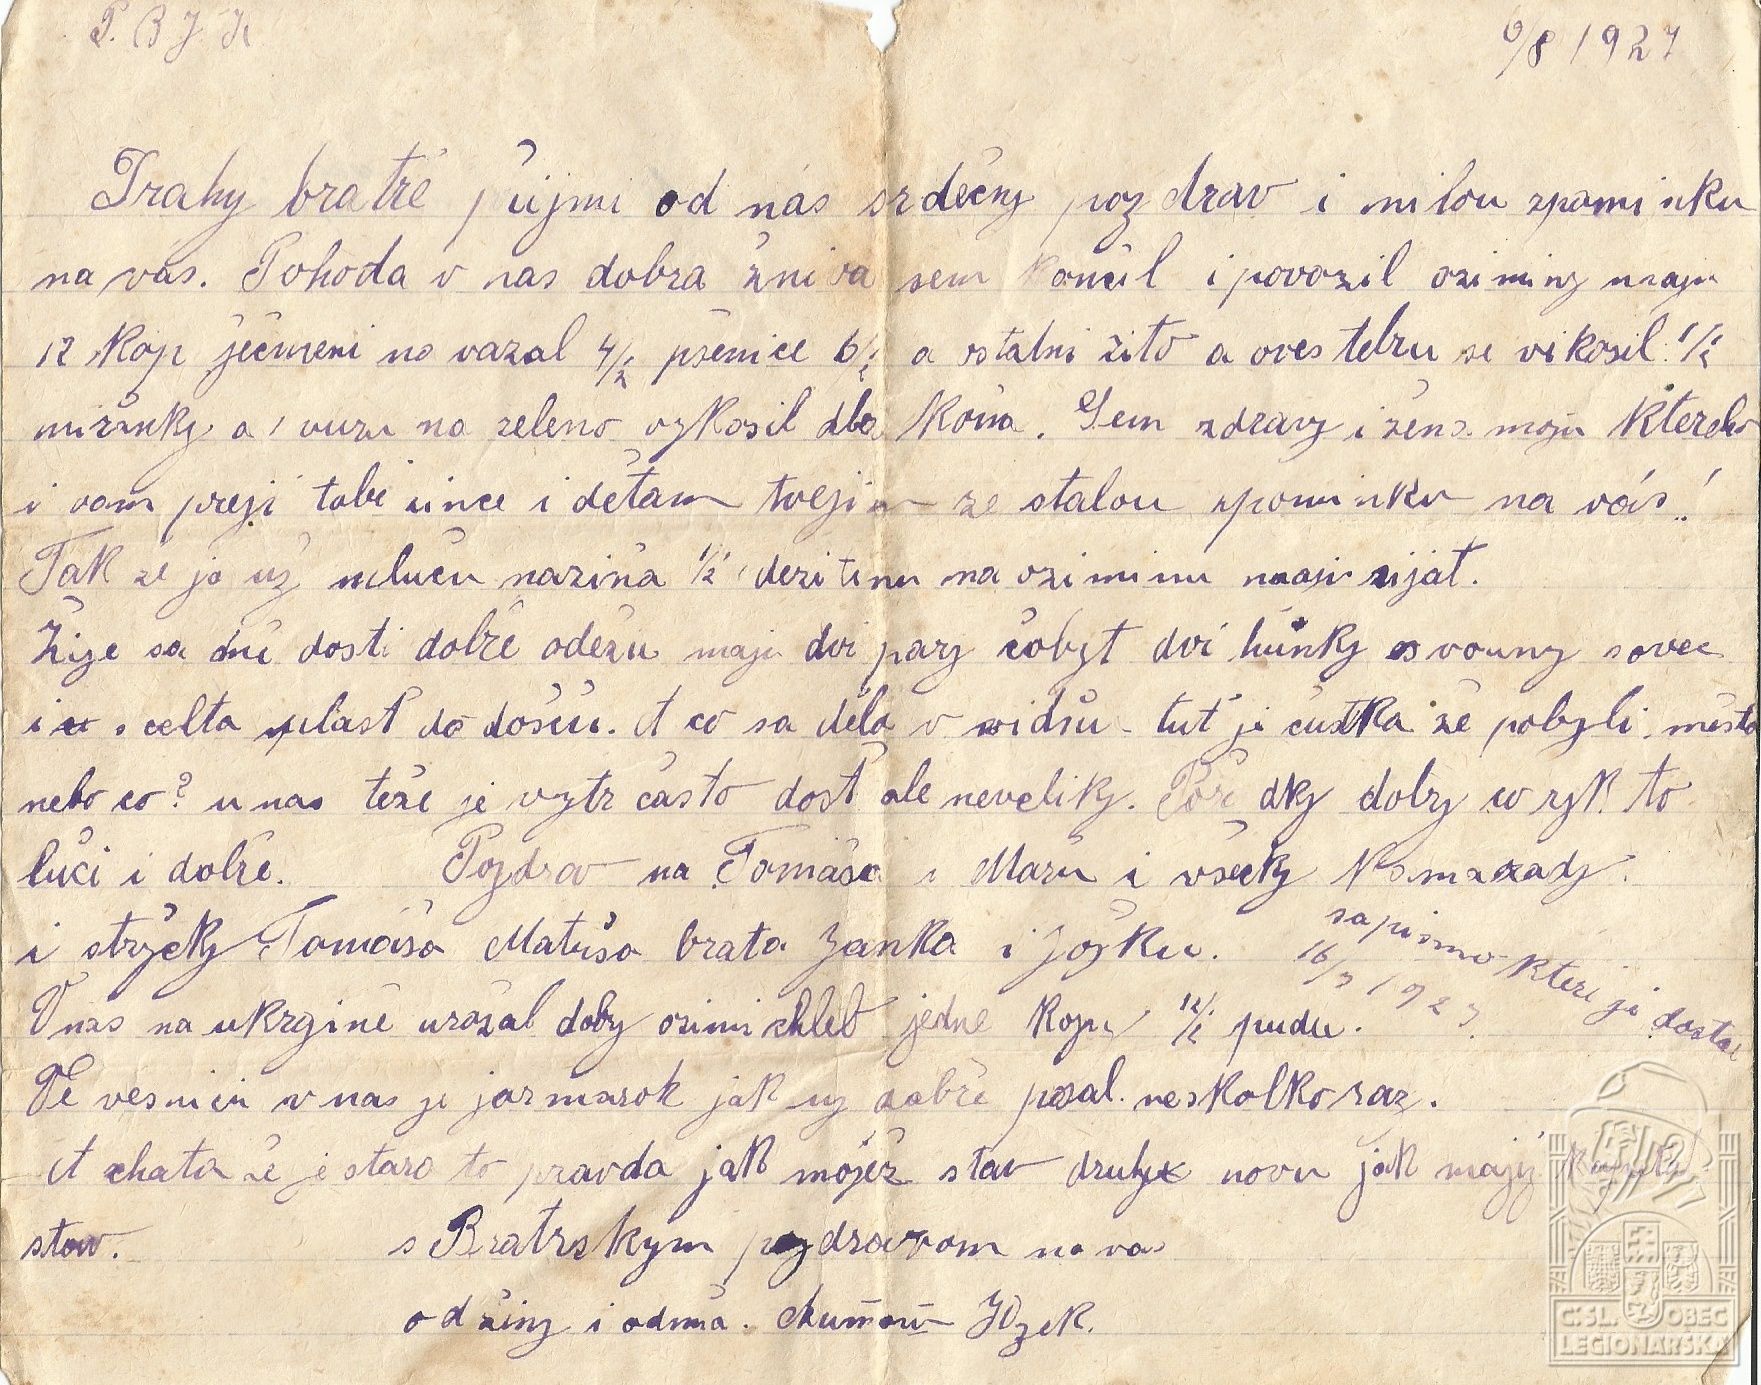 P. B J. K
9/8 1927
Drahy bratře přijmi od nás srdečny pozdrav i milou zpominku
na vás. Pohoda v nas dobra žniva sem končil i povozil oziminy maju
12 kop ječmeni na vazal 4/2 pšenice 6/2 a ostatni žito a oves tebru se vikosil 1/2
a 1 vuzu na zeleno vykosil dla koňa. Sem zdravy i žena moju ktereho
i vam preji tobě žince i dětam tvejim ze stalou zpominku na vás!
Tak že ja už mluču načina 1/2 dezitinu na oziminu maju sijat.
Žije sa mě dosti dobře oděžu maju dvi pary čobyt dvi huňky svouny
i scelta plašť do doščů. A co sa děla v vidňu tut je čustka že pobyli město
nebo co? u nas teže je vytr často dosť ale neveliky. Pořadky dobry to
luči i dobře. Pozdrav na Tomáša i Mařu i všecky kamarady.
i stryčky Tomáša Matuša brata Janka i Jožku.
sa pismo kteri je dostal
16/7 1927
V nas na ukrgině urožal doby ozimi chleb jedne kopy 12/2 pudu.
Ve vesnicu v nas je jarmarok jak už dobře psal. neskolko raz.
A chata že je stara to pravda jak možeš stav druhe novu jak maju
stav. s Bratrskym pozdravom na vas
od žiny i odmňa. Jozek.